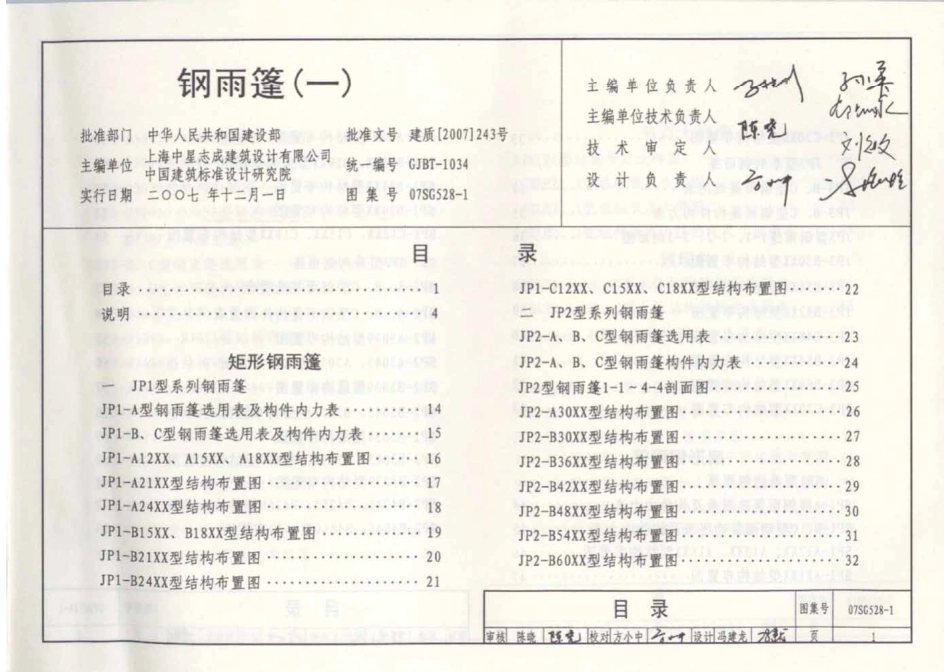 钢雨篷(一)
批准部门 中华人民共和国建设部 批准文号 建质[2007]243号
主编单位 上海中星志成建筑设计有限公司
中国建筑标准设计研究院 统一编号 GJBT-1034
实行日期 二〇〇七年十二月一日 图集号 07SG528-1
主编单位负责人
主编单位技术负责人
技术审定人 陈亮
设计负责人
目 录
目录 1
说明 4
矩形钢雨篷
一 JP1型系列钢雨篷
JP1-A型钢雨篷选用表及构件内力表 14
JP1-B、C型钢雨篷选用表及构件内力表 15
JP1-A12XX、A15XX、A18XX型结构布置图 16
JP1-A21XX型结构布置图 17
JP1-A24XX型结构布置图 18
JP1-B15XX、B18XX型结构布置图 19
JP1-B21XX型结构布置图 20
JP1-B24XX型结构布置图 21
JP1-C12XX、C15XX、C18XX型结构布置图 22
二 JP2型系列钢雨篷
JP2-A、B、C型钢雨篷选用表 23
JP2-A、B、C型钢雨篷构件内力表 24
JP2型钢雨篷1-1~4-4剖面图 25
JP2-A30XX型结构布置图 26
JP2-B30XX型结构布置图 27
JP2-B36XX型结构布置图 28
JP2-B42XX型结构布置图 29
JP2-B48XX型结构布置图 30
JP2-B54XX型结构布置图 31
JP2-B60XX型结构布置图 32
目 录 图集号 07SG528-1
审核 陈晓 校对 方小中 设计 冯建龙 页 1